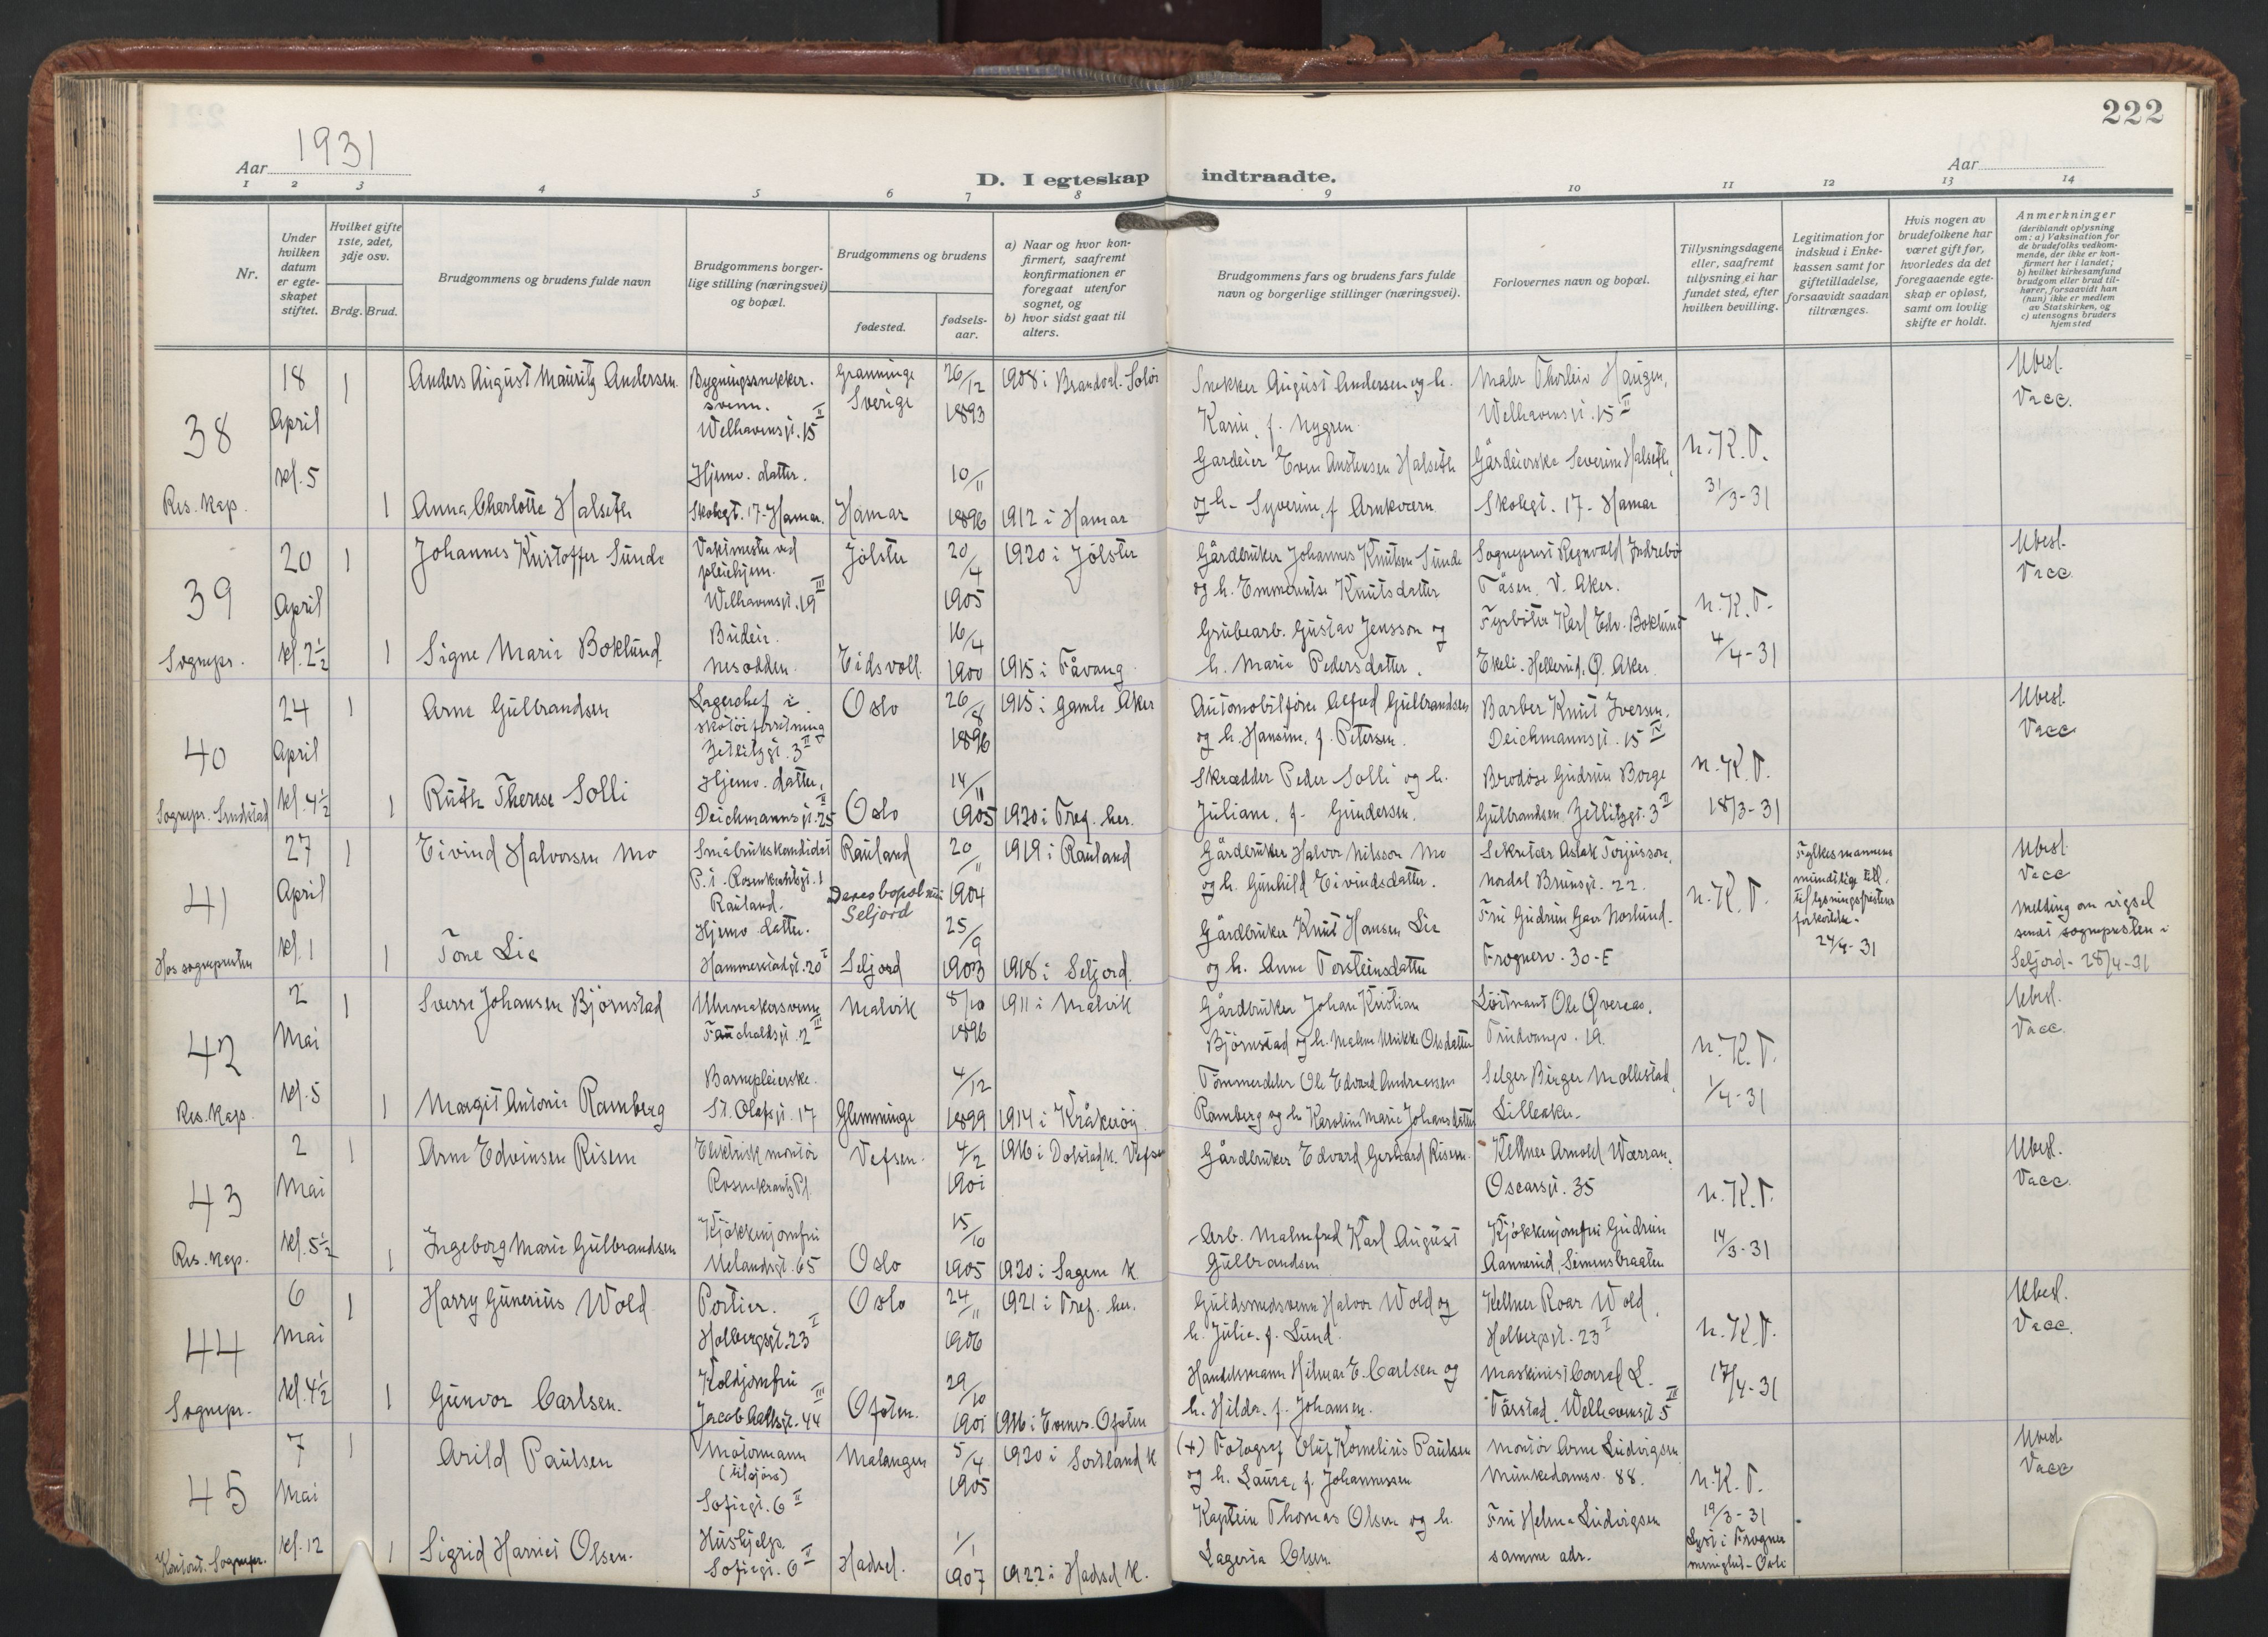 222
Aar 1931
D. I egteskap indtraadte.
Aar
1 2 3 4 5 6 7 8 9 10 11 12 13 14
Nr.
Under hvilken datum er egteskapet stiftet.
Hvilket gifte 1ste, 2det, 3dje osv.
Brdg. Brud.
Brudgommens og brudens fulde navn
Brudgommens borgerlige stilling (næringsvei) og bopæl.
Brudgommens og brudens
fødested.
fødselsaar.
a) Naar og hvor konfirmert, saafremt konfirmationen er foregaat utenfor sognet, og
b) hvor sidst gaat til alters.
Brudgommens fars og brudens fars fulde navn og borgerlige stillinger (næringsvei).
Forlovernes navn og bopæl.
Tillysningsdagene eller, saafremt tillysning ei har fundet sted, efter hvilken bevilling.
Legitimation for indskud i Enkekassen samt for giftetilladelse, forsaavidt saadan tiltrænges.
Hvis nogen av brudefolkene har været gift før, hvorledes da det foregaaende egteskap er opløst, samt om lovlig skifte er holdt.
Anmerkninger (deriblandt oplysning om: a) Vaksination for de brudefolks vedkommende, der ikke er konfirmert her i landet; b) hvilket kirkesamfund brudgom eller brud tilhører, forsaavidt han (hun) ikke er medlem av Statskirken, og c) utensogns bruders hjemsted
38
Res. Kap.
18 April kl. 5
1 Anders August Mauritz Andersen
Bygningssnekkersvenn. Welhavensgt. 15 II
Granninge Sverige
26/12 1893
1908 i Brandval. Solør
Snekker August Andersen og h. Karin, f. Nygren.
Maler Thorleiv Haugen, Welhavensgt. 15 II
1 Anna Charlotte Halseth
Hjemv. datter. Skolegt. 17 - Hamar.
Hamar
10/11 1896
1912 i Hamar
Gardeier Even Austensen Halseth og h. Syverine, f. Arnkværn
Gårdeierske Severine Halseth, Skolegt. 17 - Hamar
n. K. T. 31/3-31
Ubesl. Vacc.
39
Sognepr.
20 April kl. 2½
1 Johannes Kristoffer Sunde
Vaktmester ved pleiehjem. Welhavensgt. 19 III
Jølster
20/4 1905
1920 i Jølster
Gårdbruker Johannes Knutsen Sunde og h. Emmerentse Knutsdatter
Sogneprest Regnvald Indrebø Tåsen, V. Aker.
1 Signe Marie Boklund
Budeie. Nesodden.
Eidsvoll
16/4 1900
1915 i Fåvang.
Grubearb. Gustav Jensson og h. Marie Pedersdatter.
Fyrbøter Karl Edv. Boklund Ekeli. Hellerud, Ø. Aker
n. K. T. 4/4-31
Ubesl. Vacc.
40
Sognepr. Sundstad
24 April kl. 4½
1 Arne Gulbrandsen
Lagerchef i skotøiforretning Zetlitzgt. 3 II
Oslo
26/8 1896
1915 i Gamle Aker
Automobilfører Alfred Gulbrandsen og h. Hansine, f. Petersen.
Barber Knut Iversen. Deichmannsgt. 15 IV
1 Ruth Therese Solli
Hjemv. datter, Deichmannsgt. 25 II
Oslo
14/11 1905
1920 i Tref. her.
Skrædder Peder Solli og h. Juliane, f. Gundersen.
Brodøse Gudrun Borge Gulbrandsen, Zetlitzgt. 3 II
n. K. T. 18/3-31
Ubesl. Vacc
41
Hos sognepresten
27 April kl. 1
1 Eivind Halvorsen Mo
Småbrukskandidat P. t. Rosenkrantzgt. 1 Rauland.
Rauland
Deres bopel nu: Seljord
20/11 1904
1919 i Rauland
Gårdbruker Halvor Nilsson Mo og h. Gunhild Eivindsdatter.
Sekretær Aslak Torjusson, Nordal Brunsgt. 22.
1 Tone Lie
Hjemv. datter. Hammerstadgt. 20 I
Seljord
25/9 1903
1918 i Seljord.
Gårdbruker Knut Hansen Lie og h. Anne Torsteinsdatter
Fru Gudrun Norlund. Frognerv. 30-E
n. K. T.
Fylkesmannens mundtlige till. til lysningsfristens forkortelse. 24/4-31
Ubesl. Vacc
Melding om vigsel sendt sognepresten i Seljord - 28/4-31
42
Res. Kap.
2 Mai kl. 5
1 Sverre Johansen Bjørnstad
Uhrmakersvenn Fauchaldsgt. 2 III
Malvik
8/10 1896
1911 i Malvik
Gårdbruker Johan Kristian Bjørnstad og h. Malene Ulrikke Olsdatter
Løitnant Ole Øvereas. Trudvangv. 19.
1 Margit Antonie Ramberg
Barnepleierske. St. Olafsgt. 17
Glemminge
4/12 1899
1914 i Kråkerøy
Tømmerdeler Ole Edvard Andreassen Ramberg og h. Karoline Marie Johansdatter
Selger Birger Mollestad, Lilleaker.
n. K. T. 1/4-31
Ubesl. Vacc.
43
Res. Kap.
2 Mai kl. 5½
1 Arne Edvinsen Risem
Elektrisk montør Rosenkrantz Pl.
Vefsen.
4/2 1901
1916 i Dolstad k. Vefsen
Gårdbruker Edvard Gerhard Risem.
Kellner Arnold Wærran. Oscarsgt. 35
1 Ingeborg Marie Gulbrandsen
Kjøkkenjomfru Uelandsgt. 65
Oslo
15/10 1905
1920 i Sagene K.
Arb. Malmfred Karl August Gulbrandsen
Kjøkkenjomfru Gudrun Aannerud, Simensbraaten
n. K. T. 14/3-31
Ubesl. Vacc.
44
Sognepr.
6 Mai kl. 4½
1 Harry Gunerius Wold
Portier. Holbergsgt. 23 I
Oslo
24/11 1906
1921 i Tref. her.
Guldsmedsvenn Halvor Wold og h. Julie. f. Lund.
Kellner Roar Wold, Holbergsgt. 23 I
1 Gunvor Carlsen.
Koldjomfru Jacob Aallsgt. 44 III
Ofoten.
29/10 1901
1916 i Evenes. Ofoten
Handelsmann Hilmar E. Carlsen og h. Hilda. f. Johansen.
Maskinist Conrad L. Tårstad. Welhavensgt 5 III
n. K. T. 17/4-31
Ubesl. Vacc.
45
Kontoret. Sognepr.
7 Mai kl. 12
1 Arild Paulsen
Motormann (tilsjøs) Sofiegt. 6 II
Malangen
5/4 1905
1920 i Sortland K
(+) Fotograf Oluf Kornelius Paulsen og h. Laura, f. Johannessen
Montør Arne Ludvigsen Munkedamsv. 88.
1 Sigrid Harriet Olsen.
Hushjelp. Sofiegt. 6 II
Hadsel.
1/1 1907
1922 i Hadsel K.
Kaptein Thomas Olsen og h. Lagerta Olsen
Fru Helma Ludvigsen samme adr.
n. K. T. 19/3-31 Lyst i Frogner menighet - Oslo
Ubesl. Vacc